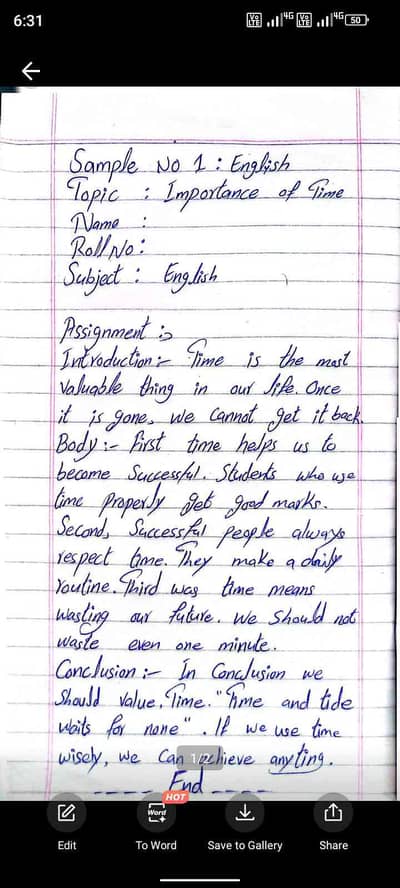 6:31
Vo LTE 4G Vo LTE 4G 50
Sample No 1 : English
Topic : Importance of Time
Name :
Roll No :
Subject : English
Assignment :-
Introduction :- Time is the most
Valuable thing in our life. Once
it is gone, we cannot get it back.
Body :- first time helps us to
become Successful. Students who use
time properly get good marks.
Second, Successful people always
respect time. They make a daily
routine. Third was time means
wasting our future. We Should not
waste even one minute.
Conclusion :- In Conclusion we
Should value, Time. "Time and tide
waits for none". If we use time
wisely, we can achieve anyting.
1/2
---- End ----
HOT
Word
Edit
To Word
Save to Gallery
Share